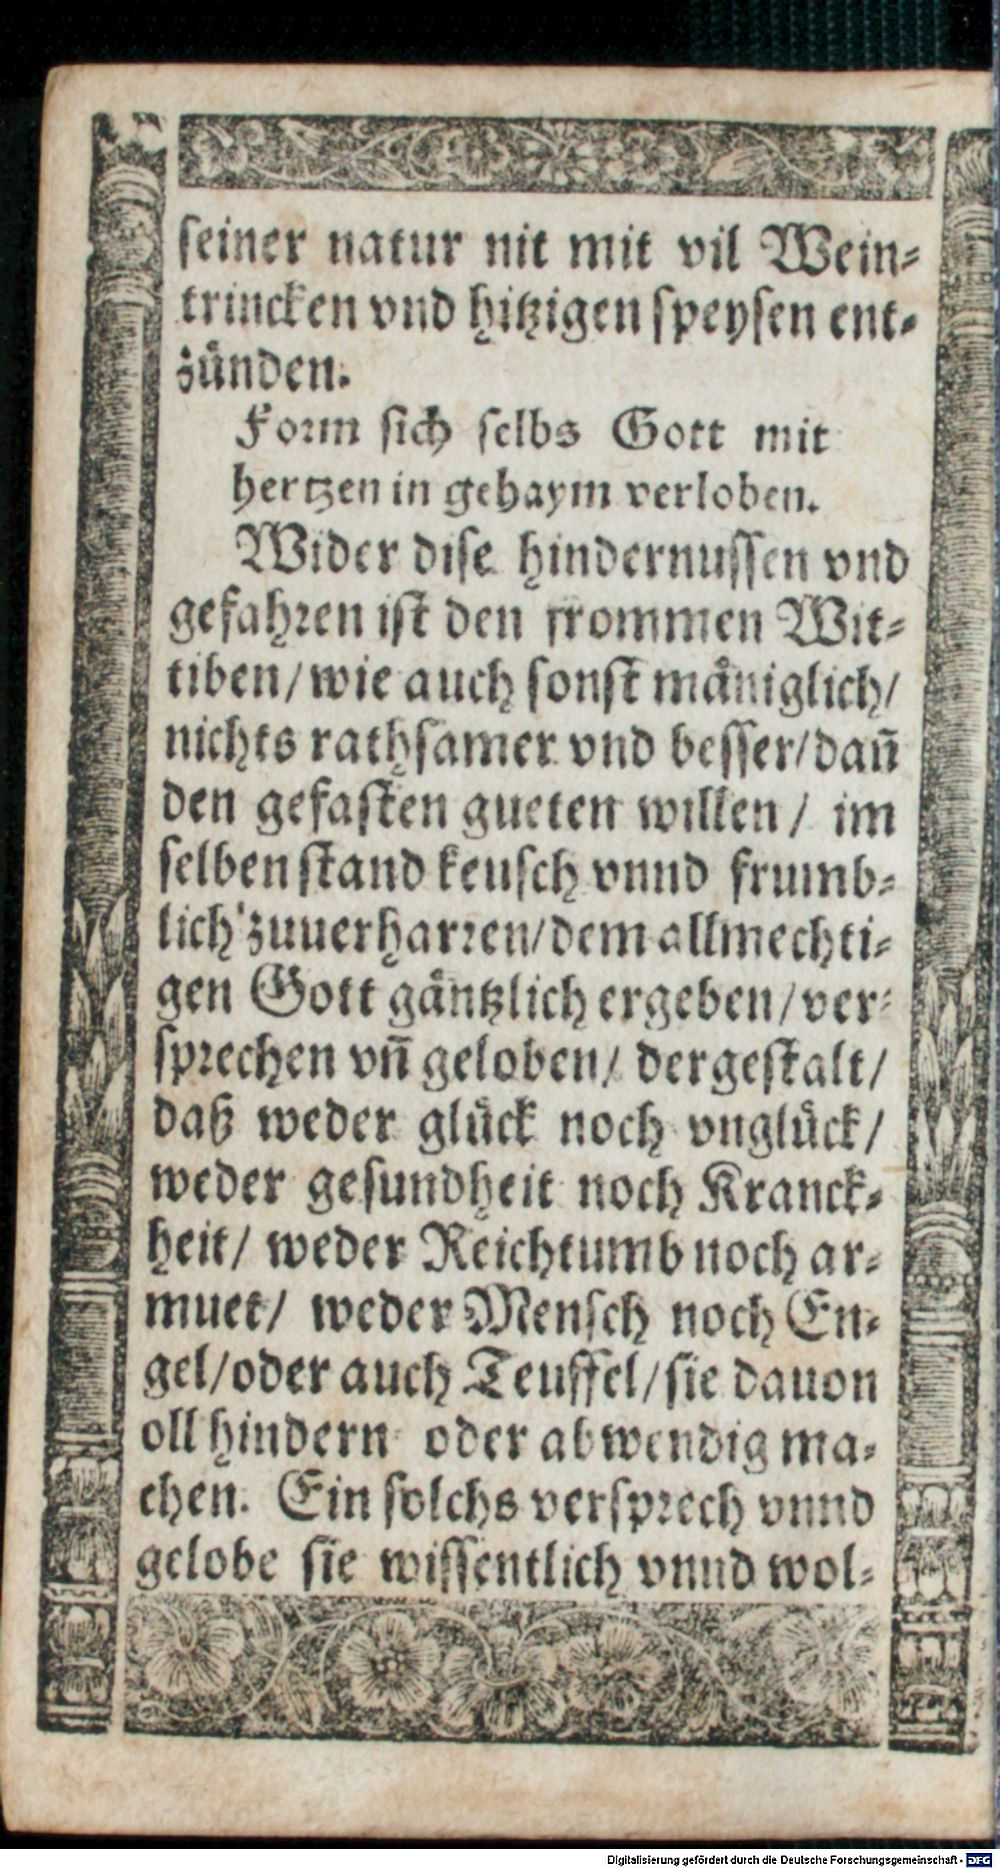 seiner natur nit mit vil Wein⸗
trincken vnd hitzigen speysen ent⸗
zünden.
Form sich selbs Gott mit
hertzen in gehaym verloben.
Wider dise hindernussen vnd
gefahren ist den frommen Wit⸗
tiben/ wie auch sonst mäniglich/
nichts rathsamer vnd besser/ dañ
den gefasten gueten willen/ im
selben stand keusch vnnd frumb⸗
lich zuuerharren/ dem allmechti⸗
gen Gott gäntzlich ergeben/ ver⸗
sprechen vñ geloben/ dergestalt/
daß weder glück noch vnglück/
weder gesundheit noch Kranck⸗
heit/ weder Reichtumb noch ar⸗
muet/ weder Mensch noch En⸗
gel/ oder auch Teuffel/ sie dauon
oll hindern oder abwendig ma⸗
chen. Ein solchs versprech vnnd
gelobe sie wissentlich vnnd wol⸗
Digitalisierung gefördert durch die Deutsche Forschungsgemeinschaft - DFG